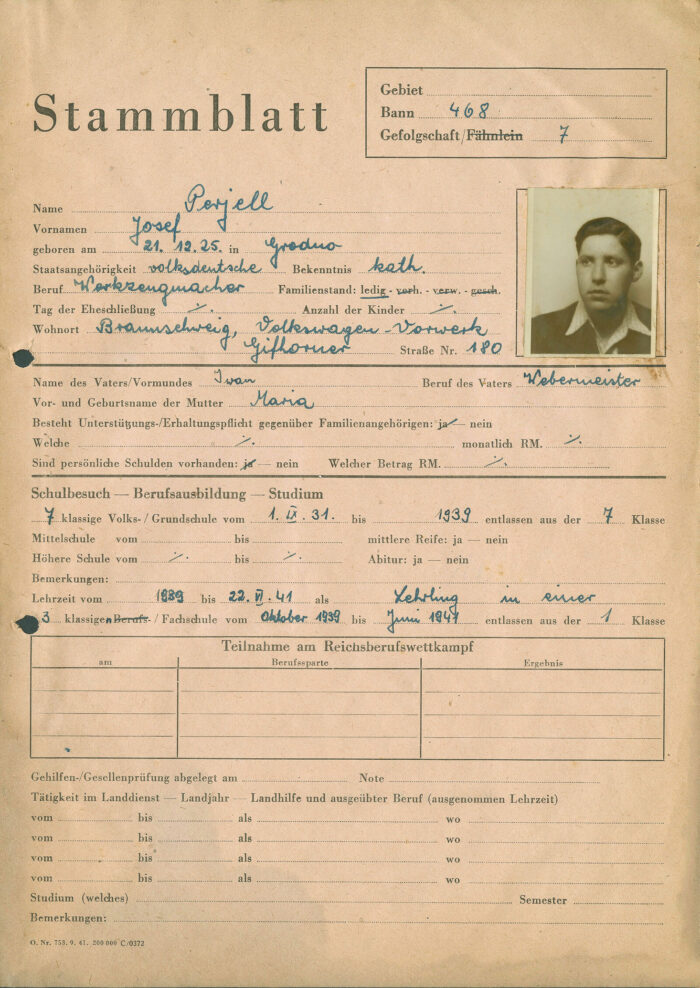 Stammblatt
Gebiet
Bann 468
Gefolgschaft/Fähnlein 7
Name Perjell
Vornamen Josef
geboren am 21. 12. 25. in Grodno
Staatsangehörigkeit volksdeutsche Bekenntnis kath.
Beruf Werkzeugmacher Familienstand: ledig - verh. - verw. - gesch.
Tag der Eheschließung ·/. Anzahl der Kinder ·/.
Wohnort Braunschweig, Volkswagen-Vorwerk
Gifhorner Straße Nr. 180
Name des Vaters/Vormundes Iwan Beruf des Vaters Webermeister
Vor- und Geburtsname der Mutter Maria
Besteht Unterstützungs-/Erhaltungspflicht gegenüber Familienangehörigen: ja — nein
Welche ·/. monatlich RM. ·/.
Sind persönliche Schulden vorhanden: ja — nein Welcher Betrag RM. ·/.
Schulbesuch — Berufsausbildung — Studium
7 klassige Volks-/Grundschule vom 1. IX. 31. bis 1939 entlassen aus der 7 Klasse
Mittelschule vom bis mittlere Reife: ja — nein
Höhere Schule vom ·/. bis ·/. Abitur: ja — nein
Bemerkungen:
Lehrzeit vom 1939 bis 22. VI. 41 als Lehrling in einer
3 klassigen Berufs-/Fachschule vom Oktober 1939 bis Juni 1941 entlassen aus der 1 Klasse
Teilnahme am Reichsberufswettkampf
am Berufssparte Ergebnis
Gehilfen-/Gesellenprüfung abgelegt am Note
Tätigkeit im Landdienst — Landjahr — Landhilfe und ausgeübter Beruf (ausgenommen Lehrzeit)
vom bis als wo
vom bis als wo
vom bis als wo
vom bis als wo
Studium (welches) Semester
Bemerkungen:
O. Nr. 753. 9. 41. 200 000 C/0372